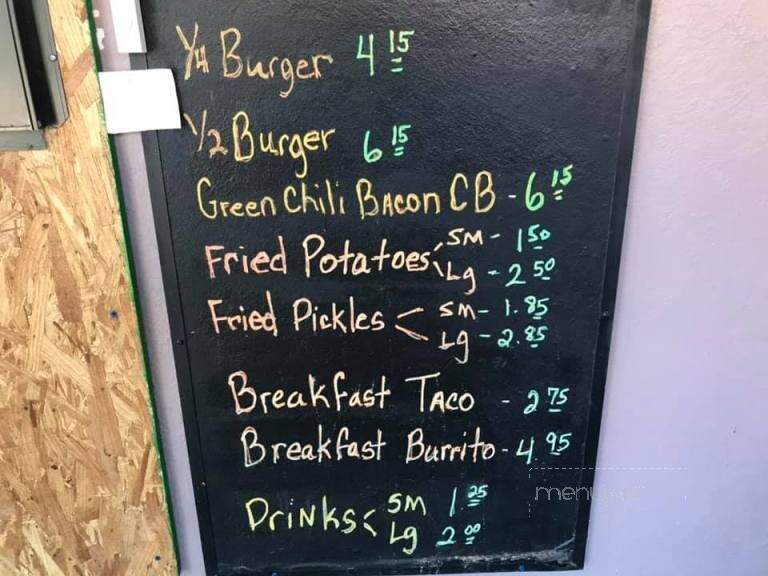 1/4 Burger 4 15
1/2 Burger 6 15
Green Chili Bacon CB - 6 15
Fried Potatoes SM - 1 50
Lg - 2 50
Fried Pickles < SM - 1.85
Lg - 2.85
Breakfast Taco - 2 75
Breakfast Burrito - 4.95
Drinks < SM 1 25
Lg 2 00